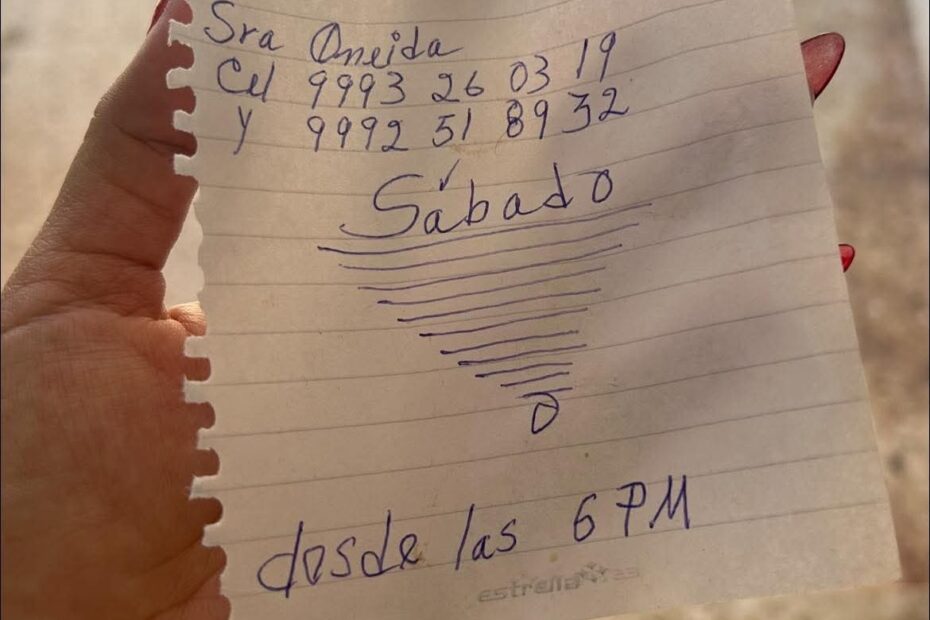 Sra Oneida
Cel 9993 26 03 19
y 9992 51 89 32
Sábado
desde las 6 PM
estrella